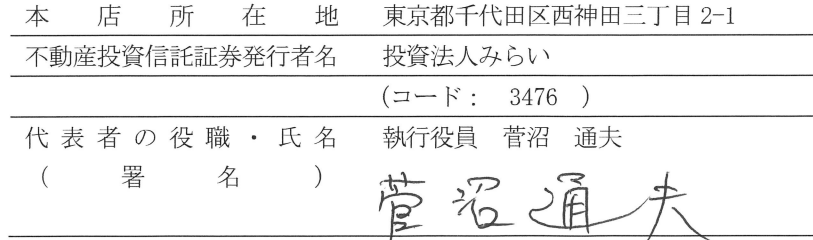 本店所在地 東京都千代田区西神田三丁目2-1
不動産投資信託証券発行者名 投資法人みらい
(コード： 3476 )
代表者の役職・氏名 執行役員 菅沼 通夫
(署名) 菅沼通夫